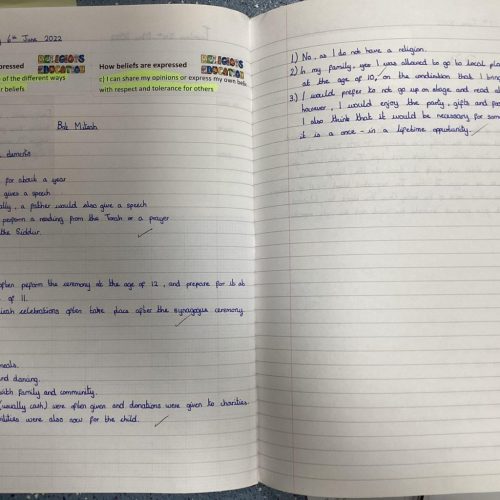 6th June 2022
xpressed
RELIGIOUS
EDUCATION
e of the different ways
r beliefs
How beliefs are expressed
RELIGIOUS
EDUCATION
c) I can share my opinions or express my own belie
with respect and tolerance for others
Bat Mitzvah
elements
for about a year
gives a speech
ally, a father would also give a speech
perform a reading from the Torah or a prayer
the Siddur.
often perform the ceremony at the age of 12, and prepare for it at
of 11.
celebrations often take place after the synagogue ceremony.
meals.
and dancing.
with family and community.
(usually cash) were often given and donations were given to charities.
were also now for the child.
1) No, as I do not have a religion.
2) In my family, yes I was allowed to go to local pla
at the age of 10, on the condition that I bring
3) I would prefer to not go up on stage and read al
however, I would enjoy the party, gifts and
I also think that it would be necessary for some
it is a once-in a lifetime opportunity.